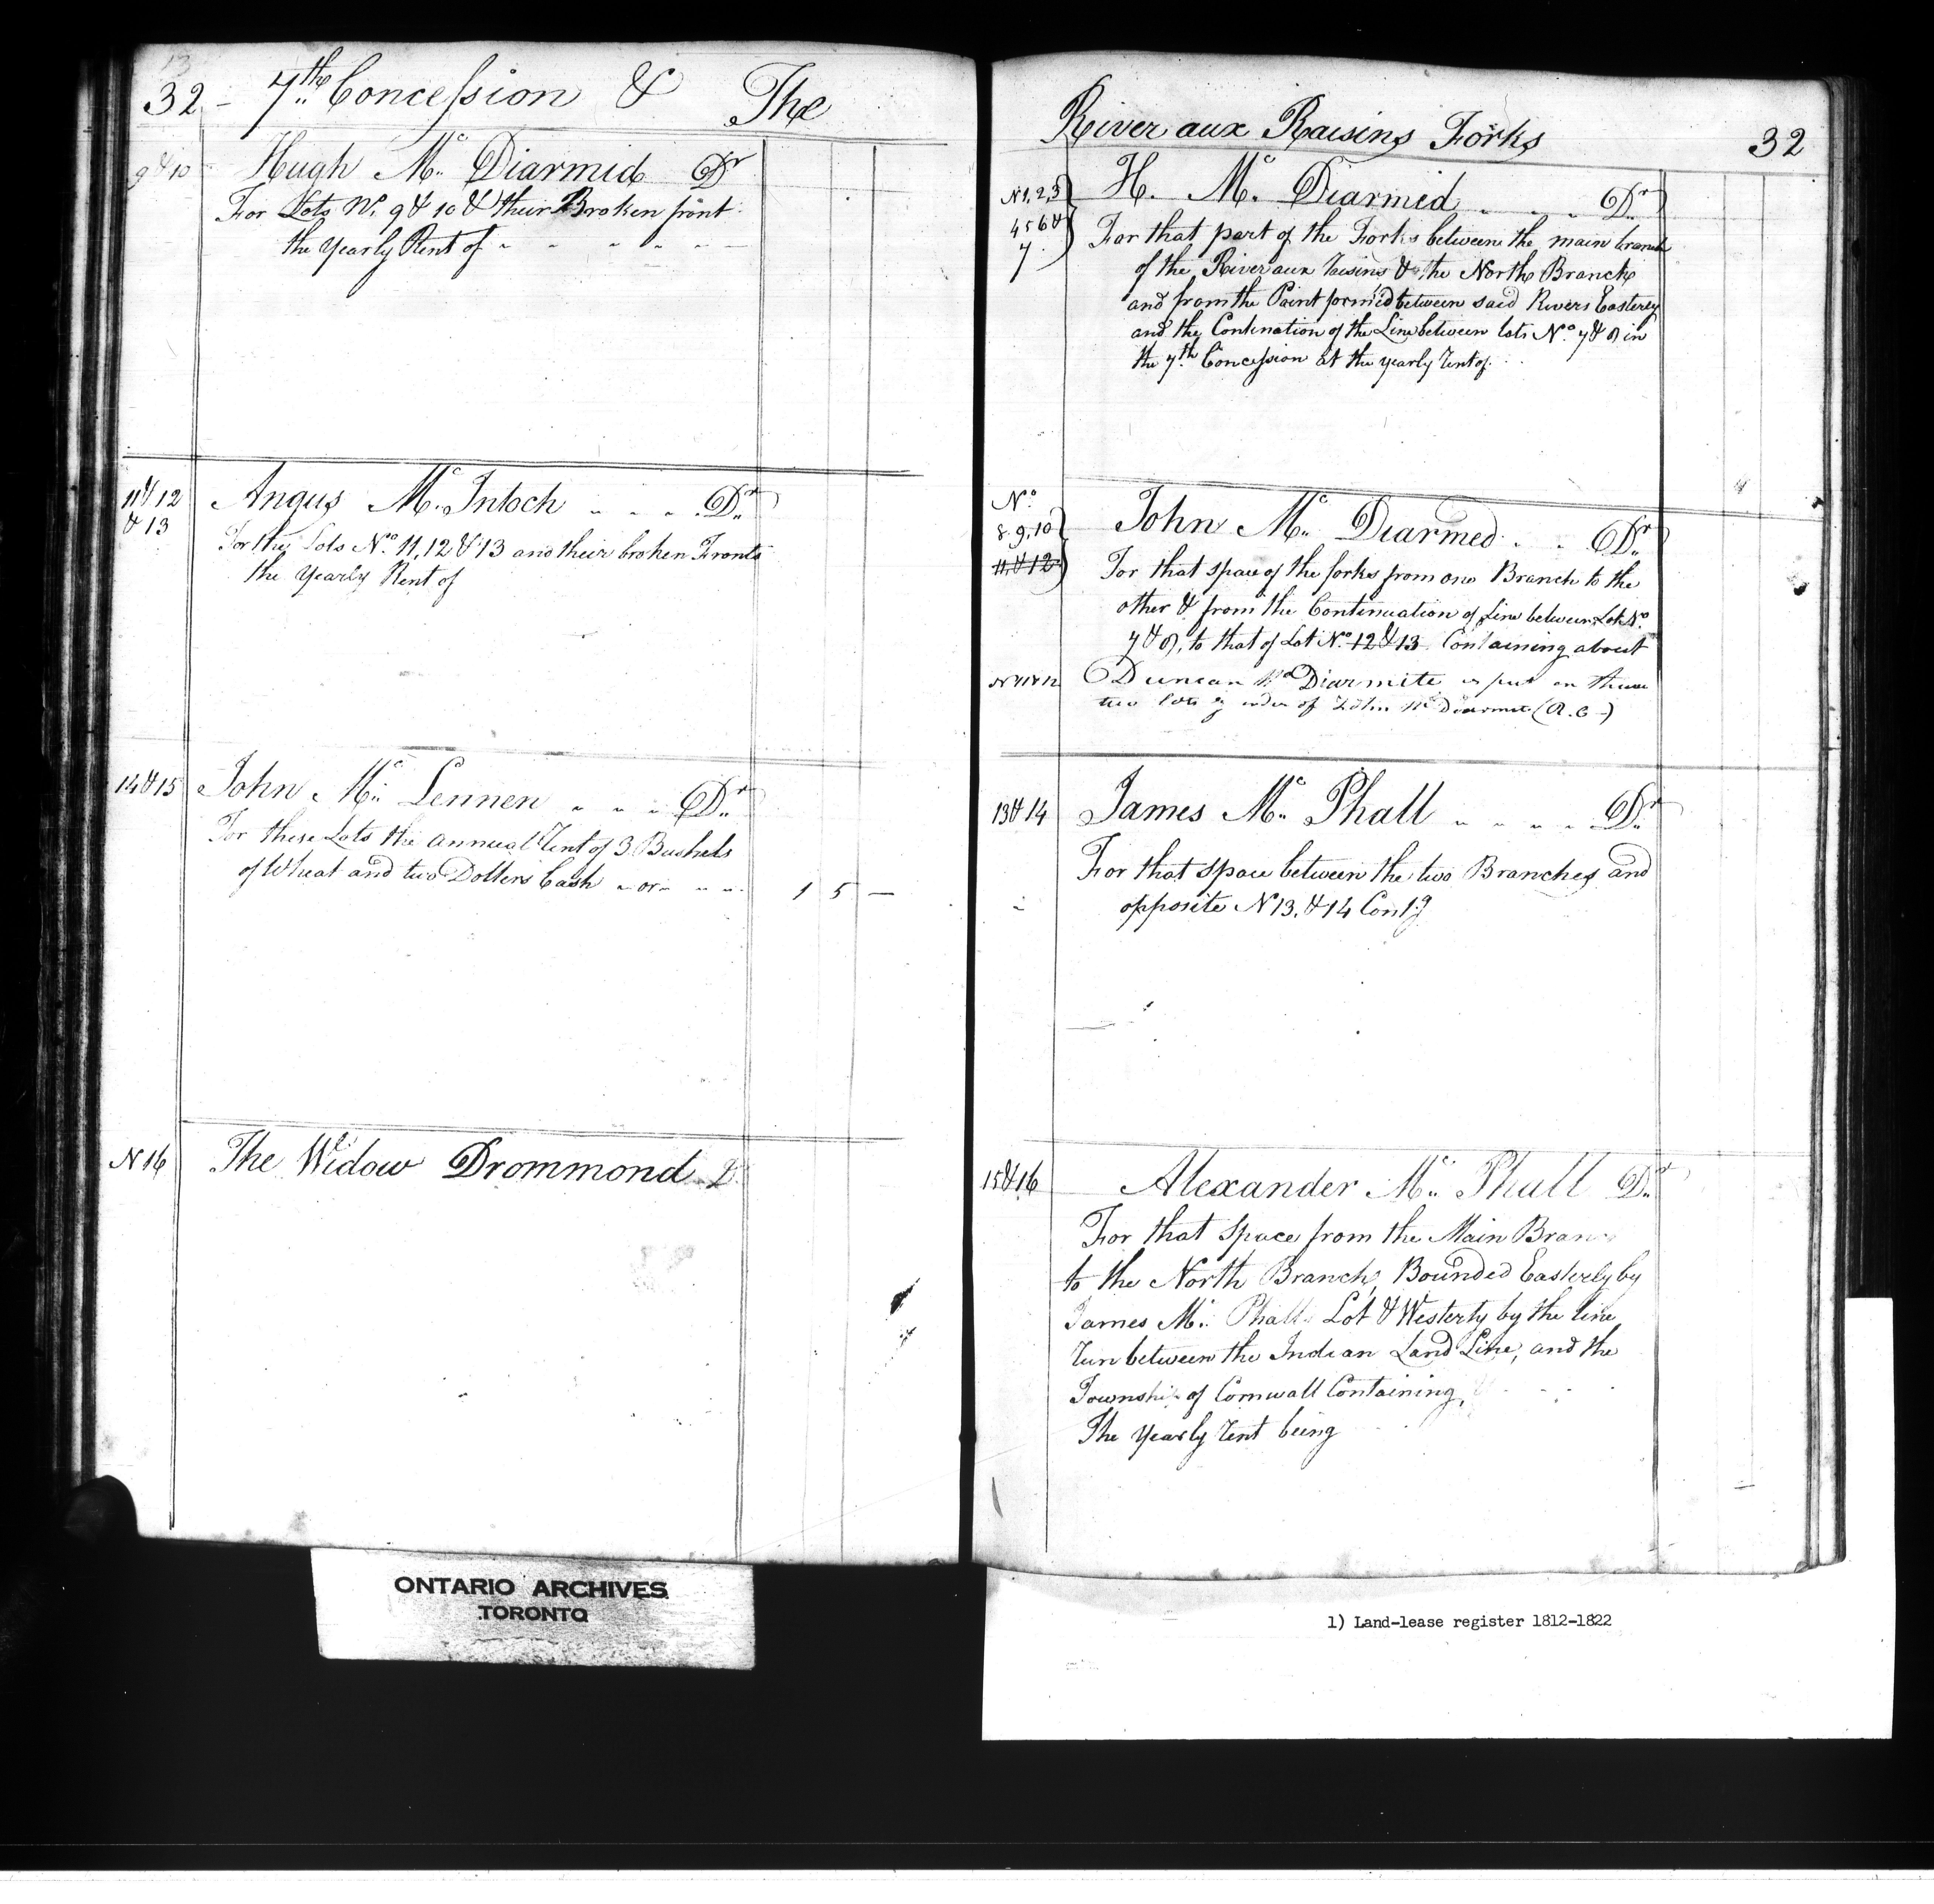 13
32 - 7th Concession & The
9 & 10 Hugh Mc Diarmid Dr
For Lots No. 9 & 10 & their Broken front
the Yearly Rent of
11 & 12
& 13
Angus Mc Intoch Dr
For the Lots No. 11, 12 & 13 and their broken Fronts
the Yearly Rent of
14 & 15 John Mc Lennen Dr
For these Lots the annual Rent of 3 Bushels
of Wheat and two Dollers Cash or 1 5 —
N 16 The Widow Drommond D
River aux Raisins Forks 32
No 1, 2, 3
4 5 6 &
7
H. Mc Diarmid Dr
For that part of the Forks between the main branch
of the River aux Raisins & the North Branch
and from the Point formed between said Rivers Easterly
and the Contination of the Line between lots No. 7 & 8 in
the 7th Concession at the yearly Rent of
No
8, 9, 10
11, & 12
John Mc Diarmed Dr
For that space of the forks from one Branch to the
other & from the Continuation of Line between Lot No
7 & 8, to that of Lot No. 12 & 13 Containing about
N 11 & 12 Duncan Mc Diarmite is put on these
two lots by order of John Mc Diarmit (A.C-)
13 & 14 James Mc Phall Dr
For that space between the two Branches and
opposite N 13, & 14 Contg
15 & 16 Alexander Mc Phall Dr
For that space from the Main Branc
to the North Branch, Bounded Easterly by
James Mc Phall Lot & Westerly by the line
Run between the Indian Land Line, and the
Township of Cornwall Containing,
The Yearly Rent being
ONTARIO ARCHIVES
TORONTO
1) Land-lease register 1812-1822